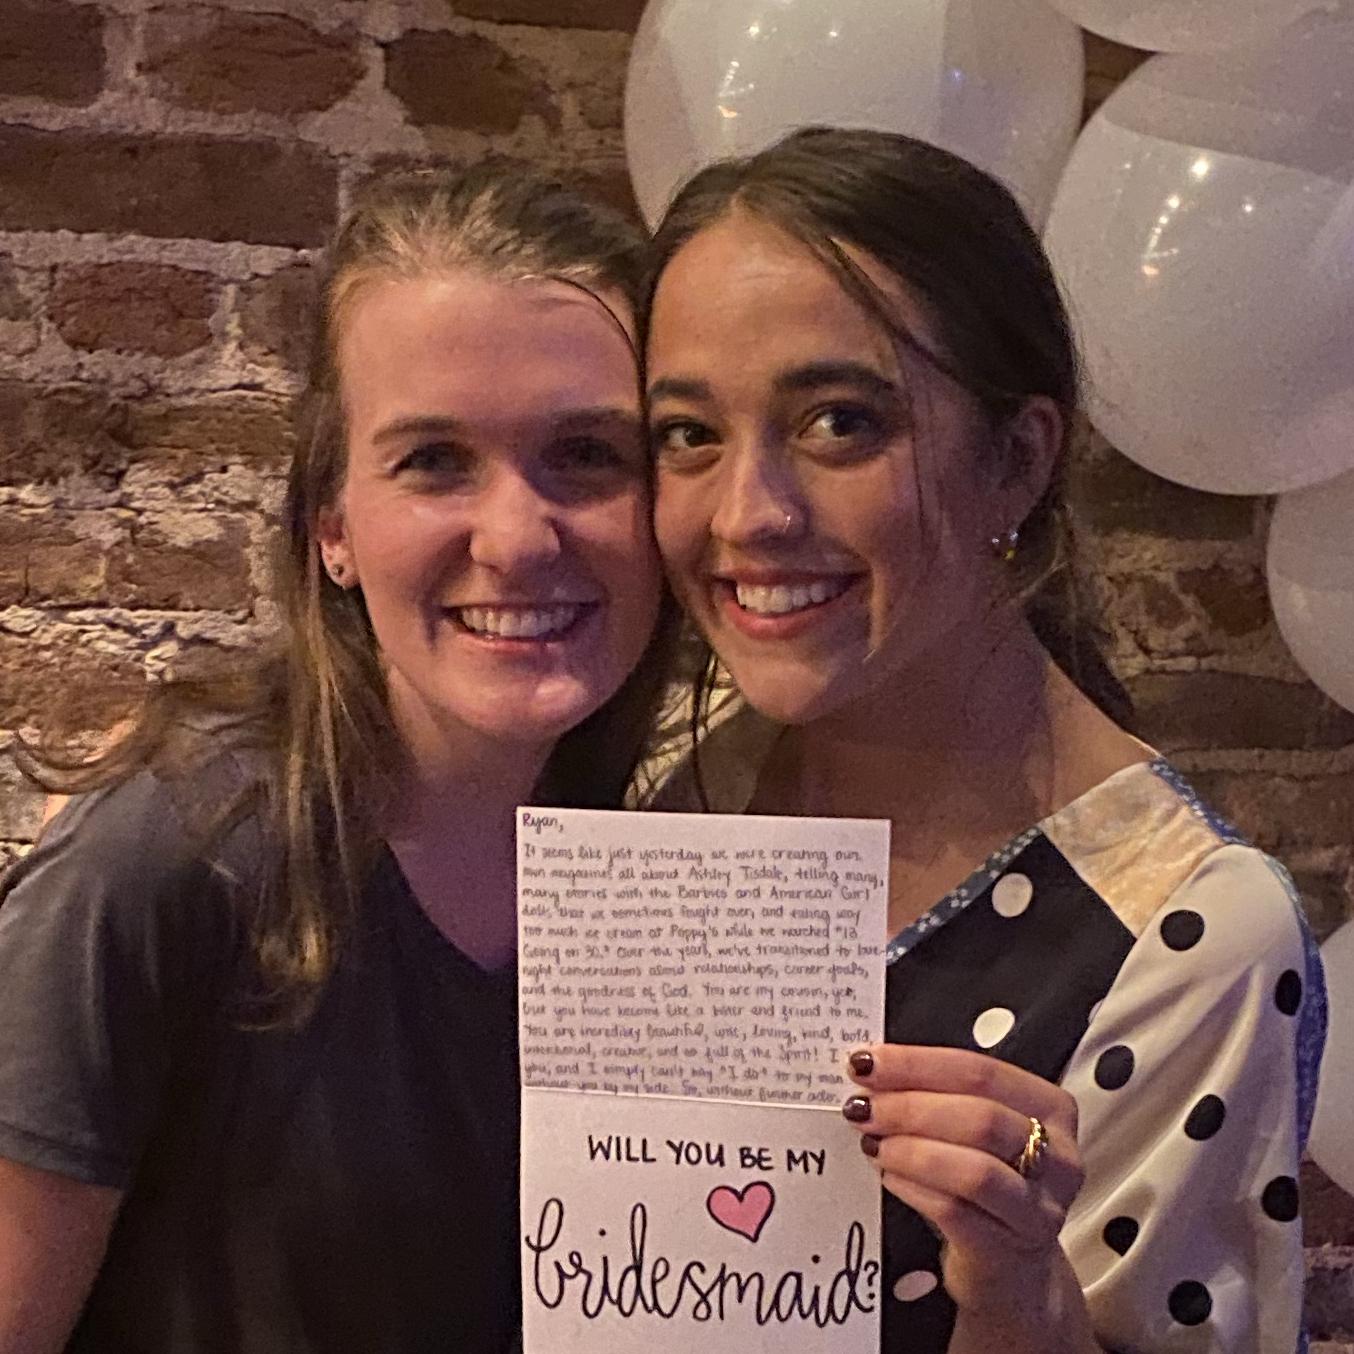 Ryan,
It seems like just yesterday we were creating our
own magazines all about Ashley Tisdale, telling many,
many stories with the Barbies and American Girl
dolls that we sometimes fought over, and eating way
too much ice cream at Poppy's while we watched "13
Going on 30." Over the years, we've transitioned to late-
night conversations about relationships, career goals,
and the goodness of God. You are my cousin, yes,
but you have become like a sister and friend to me.
You are incredibly beautiful, wise, loving, kind, bold,
intentional, creative, and so full of the Spirit! I
you, and I simply can't say "I do" to my man
without you by my side. So, without further ado..
WILL YOU BE MY
bridesmaid?